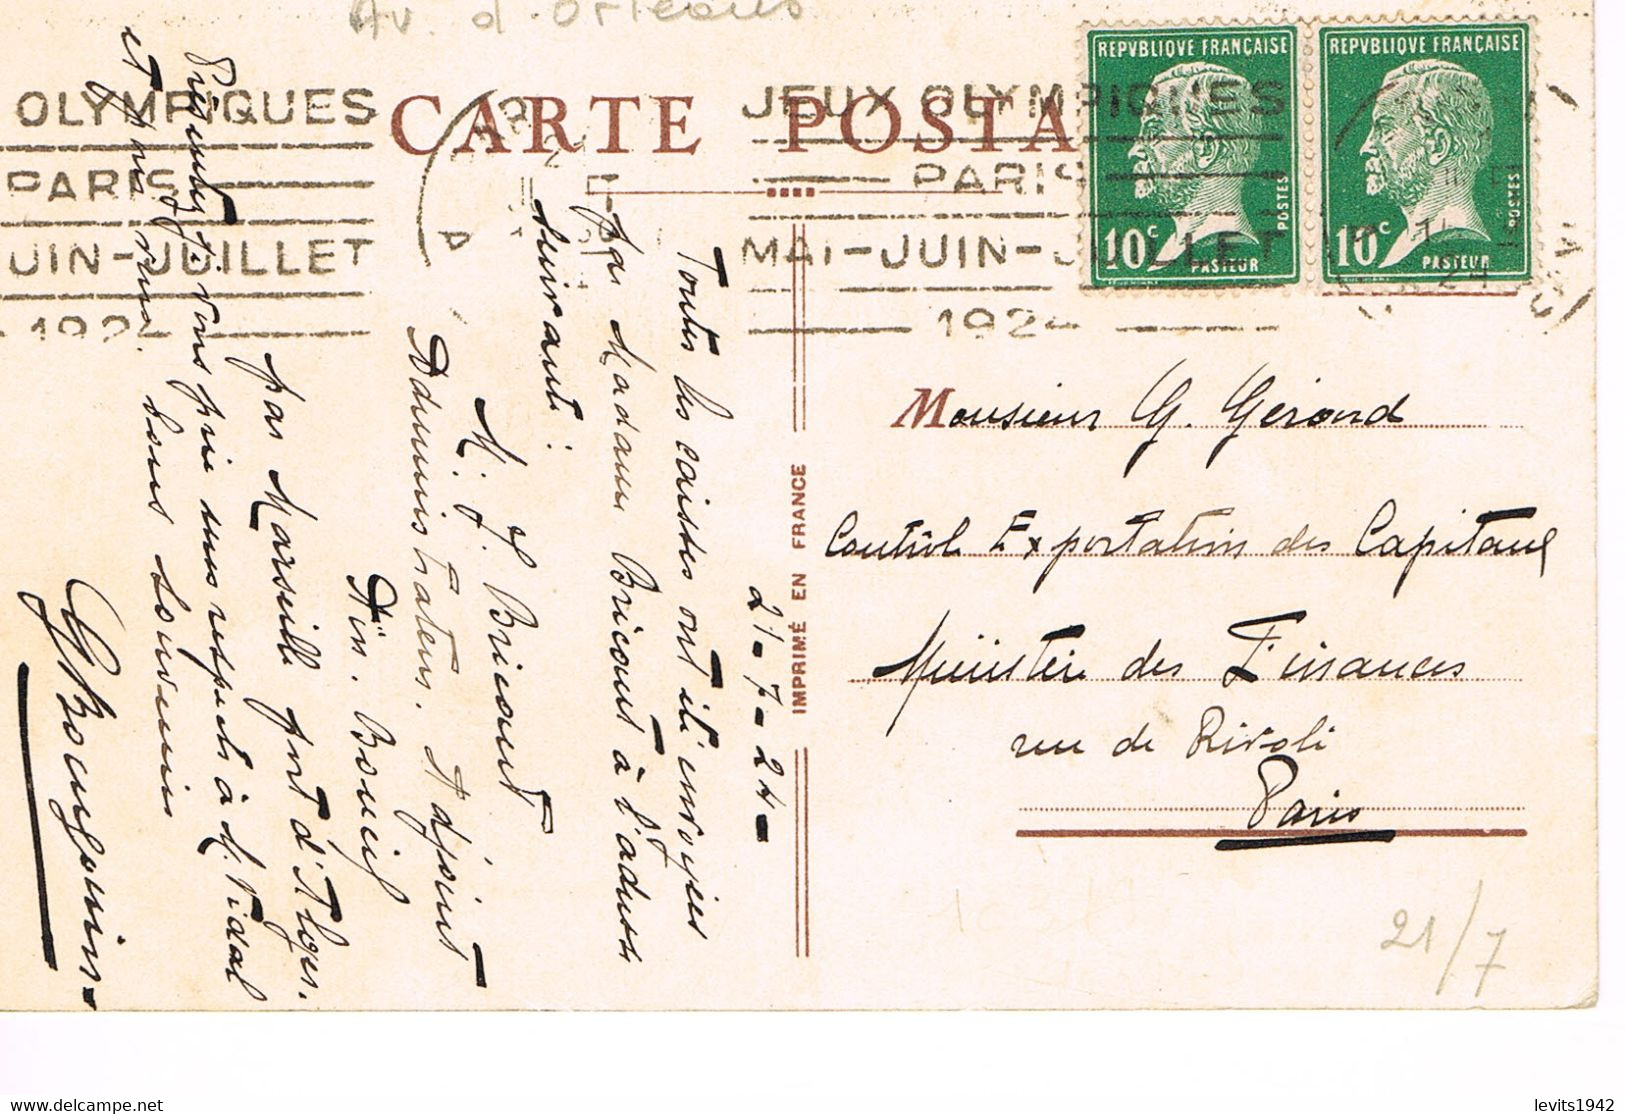 Av. d'Orléans
OLYMPIQUES
PARIS
JUIN-JUILLET
1924
CARTE POSTA
JEUX OLYMPIQUES
PARIS
MAI-JUIN-JUILLET
1924
REPVBLIQUE FRANÇAISE
10c
PASTEUR
POSTES
REPVBLIQUE FRANÇAISE
10c
PASTEUR
POSTES
21-7-24-
Toutes les caisses ont été envoyées
par Madame Bricout à l'adresse
suivante :
M. J. Bricout
Administrateur. Adjoint
Aïn. Boucif
par Marseille port d'Alger.
Présentez s. vous prie mes respects à M. Vidal
et
bons souvenirs
IMPRIMÉ EN FRANCE
Monsieur G. Gérard
Contrôle Exportation des Capitaux
Ministère des Finances
rue de Rivoli
Paris
21/7
levits1942